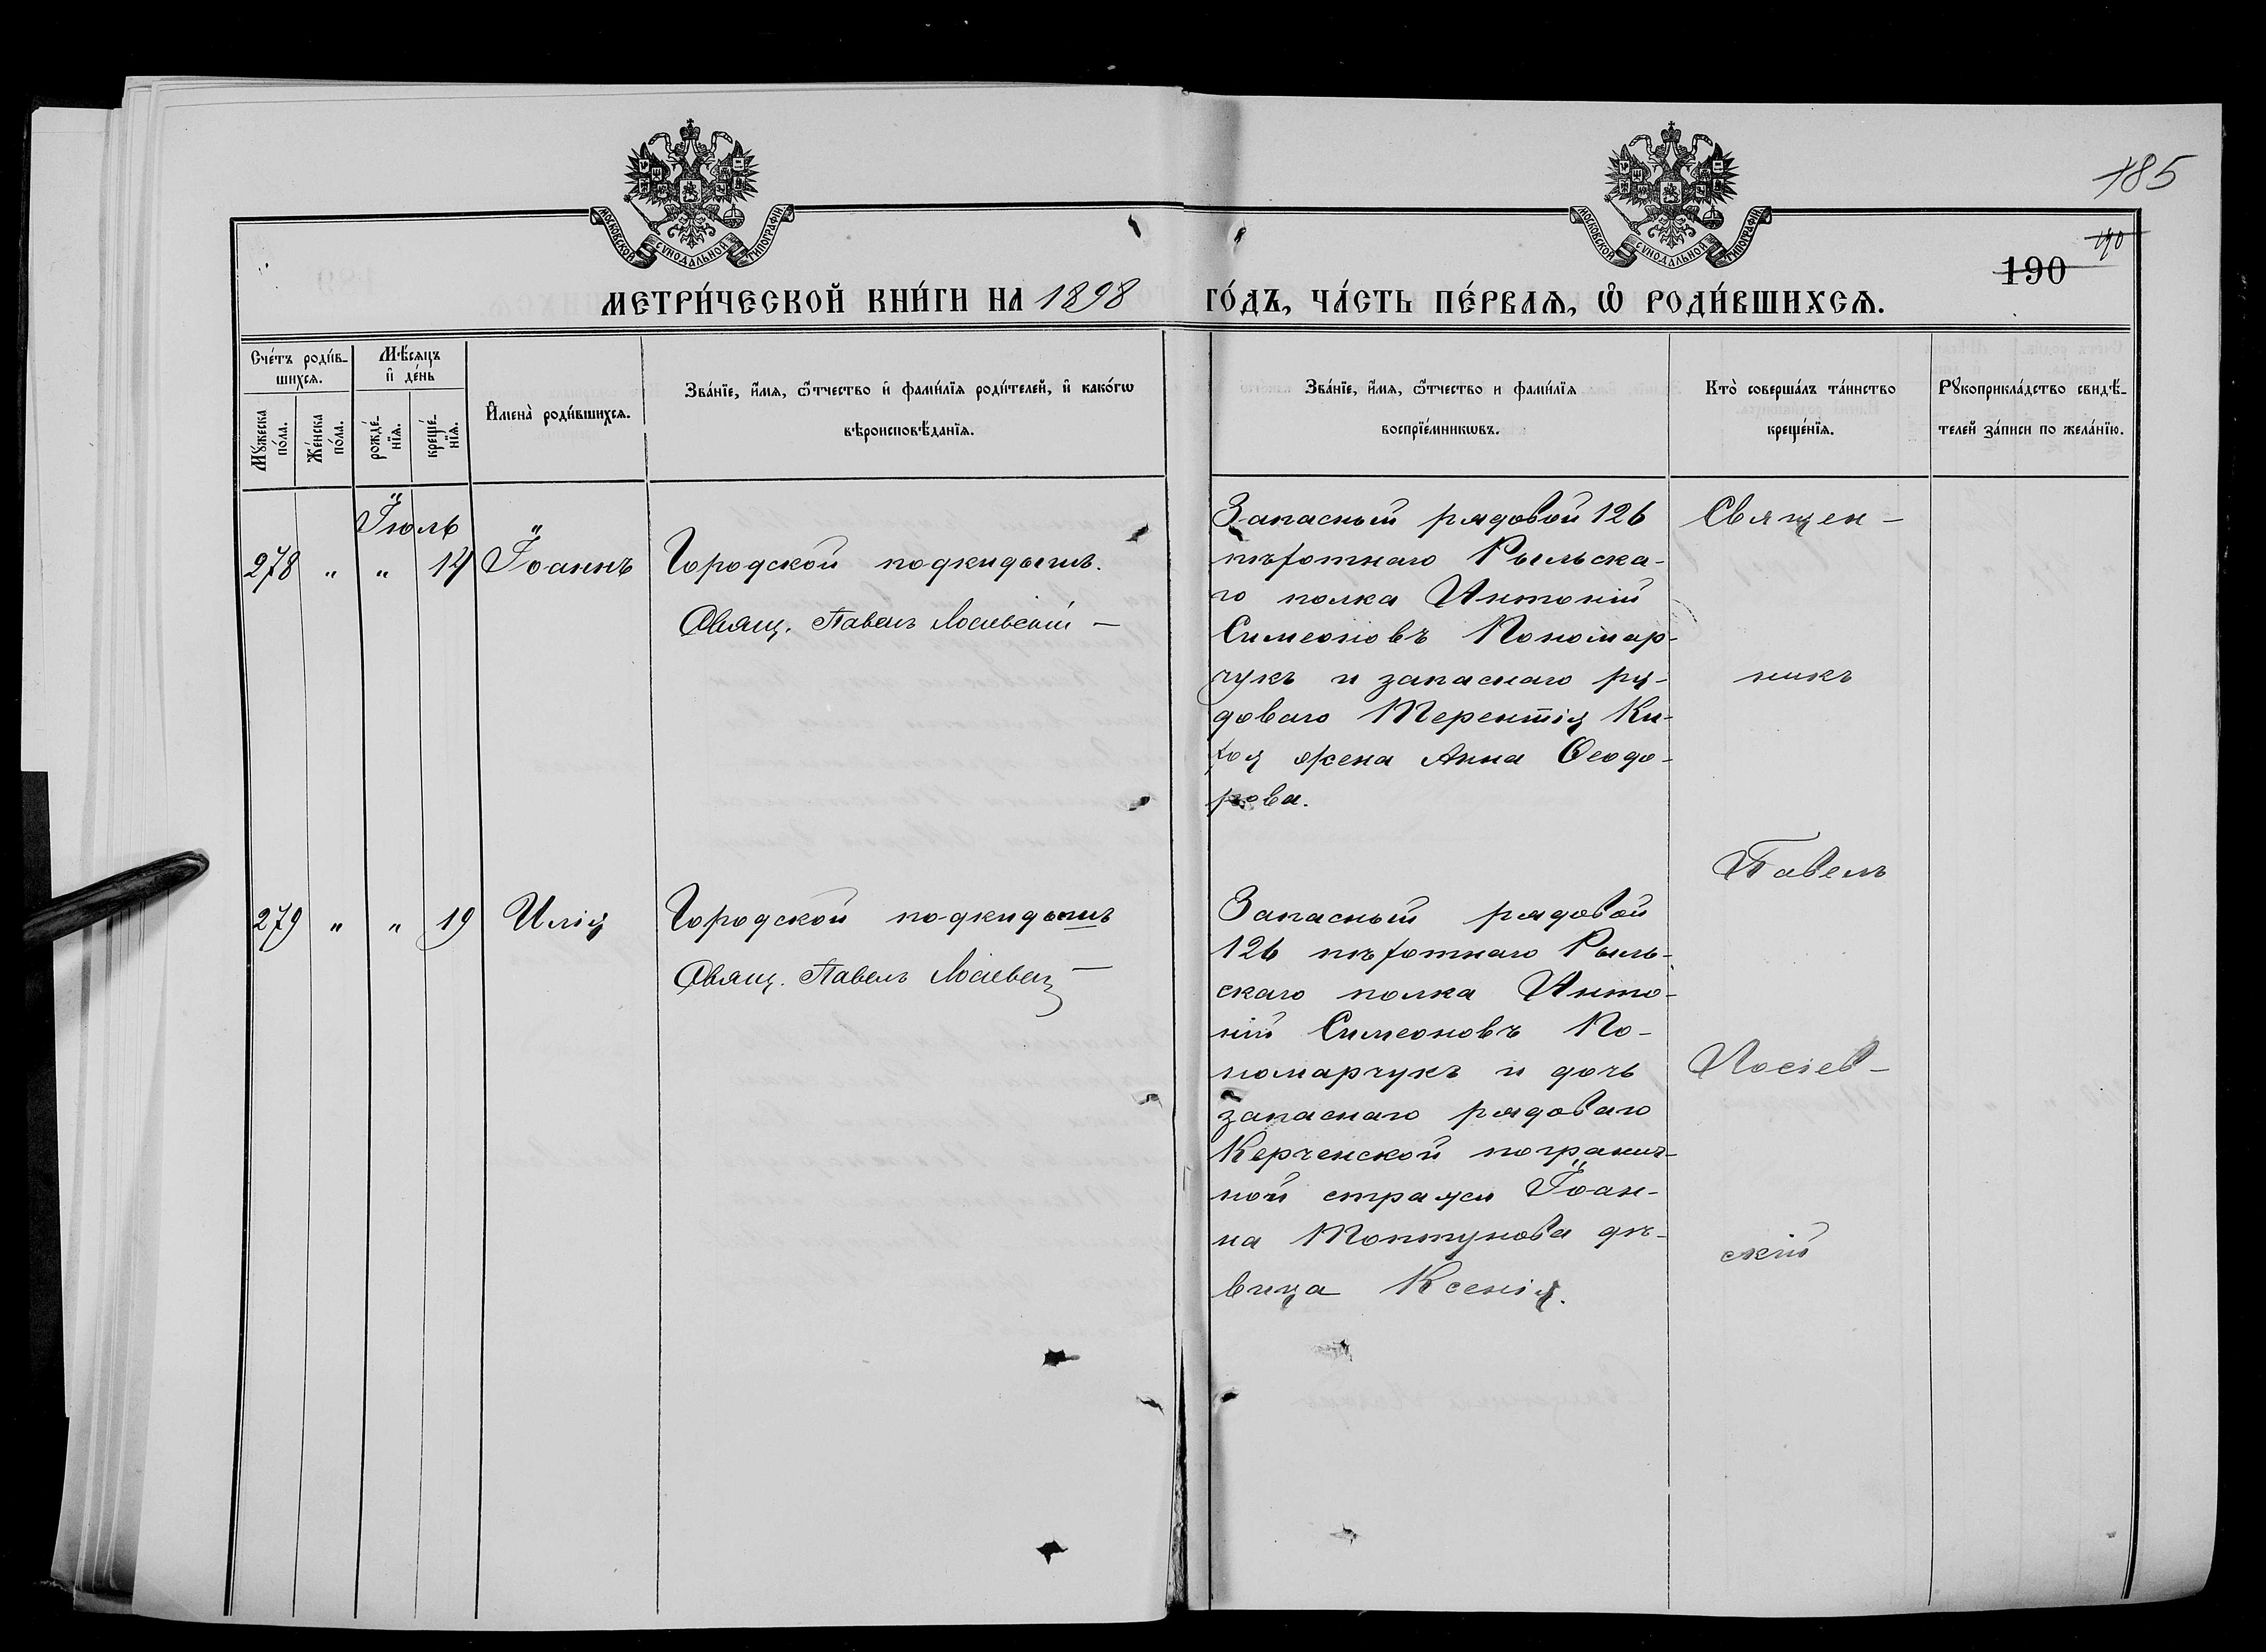 185
190
190
МОСКОВСКОЙ СУНОДАЛЬНОЙ ТИПОГРАФІИ
МОСКОВСКОЙ СУНОДАЛЬНОЙ ТИПОГРАФІИ
МЕТРИ́ЧЕСКОЙ КНИ́ГИ НА 1898
ГО́ДЪ, ЧА́СТЬ ПЕ́РВАѦ, Ѡ҆ РОДИ́ВШИХСѦ.
Сче́тъ роди́в-
шихсѧ.
Мꙋ́жеска
по́ла.
Же́нска
по́ла.
Мѣ́сѧцъ
и҆ де́нь
рожде́-
нїѧ.
креще́-
нїѧ.
И҆мена̀ роди́вшихсѧ.
Зва́нїе, и҆́мѧ, ѻ҆́тчество и҆ фами́лїѧ роди́телей, и҆ како́гѡ
вѣроисповѣ́данїѧ.
Зва́нїе, и҆́мѧ, ѻ҆́тчество и фами́лїѧ
воспрїе́мникѡвъ.
Кто̀ соверша́лъ та́инство
креще́нїѧ.
Рꙋкоприкла́дство свидѣ́-
телей за́писи по жела́нїю.
Іюль
278 " " 14 Іоаннъ Городской подкидышъ.
Свящ. Павелъ Лосіевскій —
Запасный рядовой 126
пѣхотнаго Рыльска-
го полка Антоній
Симеоновъ Пономар-
чукъ и запаснаго ря-
доваго Терентія Ки-
хоя жена Анна Ѳеодо-
рова.
279 " " 19 Илія Городской подкидышъ
Свящ. Павелъ Лосіевск —
Запасный рядовой
126 пѣхотнаго Рыль-
скаго полка Анто-
ній Симеоновъ По-
номарчукъ и дочь
запаснаго рядоваго
Керченской погранич-
ной стражи Іоан-
на Топтунова дѣ-
вица Ксенія.
Священ-
никъ
Павелъ
Лосіев-
скій